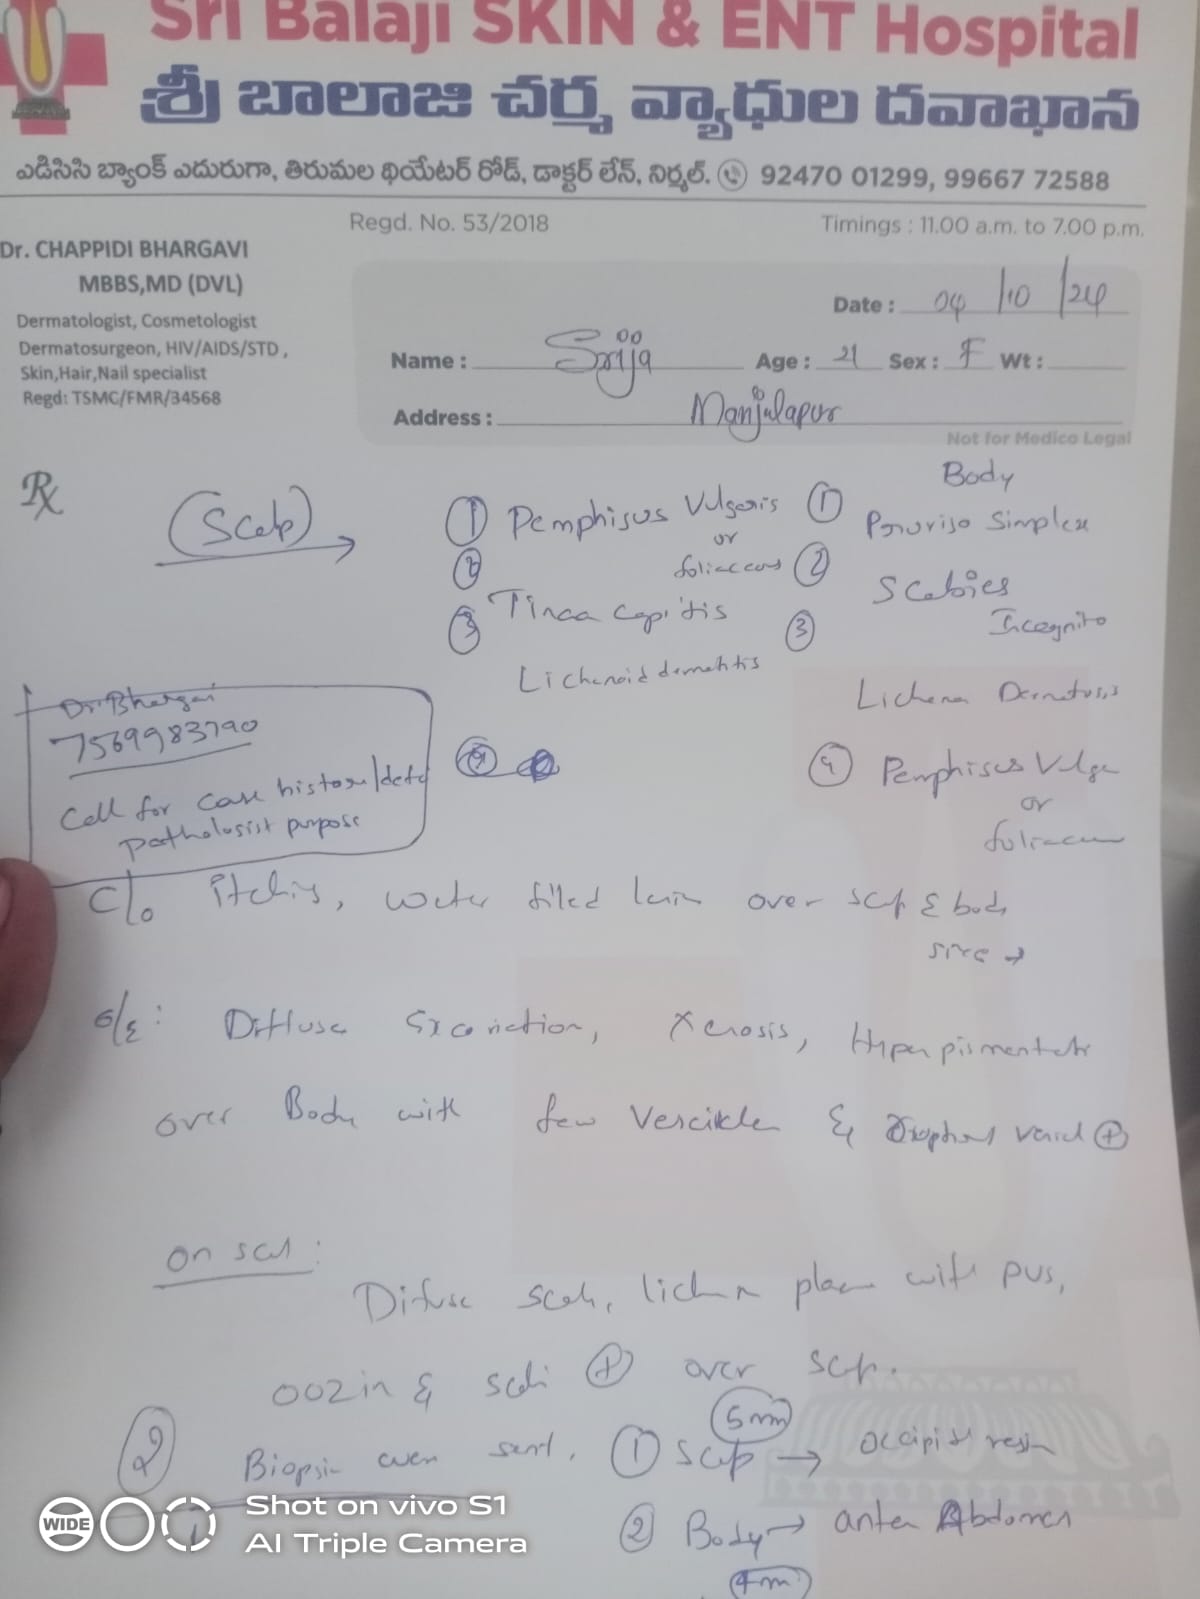 Sri Balaji SKIN & ENT Hospital
శ్రీ బాలాజి చర్మ వ్యాధుల దవాఖాన
ఎడిసిసి బ్యాంక్ ఎదురుగా, తిరుమల థియేటర్ రోడ్, డాక్టర్ లేన్, నిర్మల్. 92470 01299, 99667 72588
Regd. No. 53/2018
Timings : 11.00 a.m. to 7.00 p.m.
Dr. CHAPPIDI BHARGAVI
MBBS,MD (DVL)
Dermatologist, Cosmetologist
Dermatosurgeon, HIV/AIDS/STD,
Skin,Hair,Nail specialist
Regd: TSMC/FMR/34568
Date : 04/10/24
Name : Srija Age : 21 Sex : F Wt :
Address : Manjulapur
Not for Medico Legal
Rx
(Scalp) →
① Pemphigus Vulgaris
or
foliaceus
②
Tinea capitis
③
Lichenoid dermatitis
④
Body
① Prurigo Simplex
② Scabies
Incognito
③
④ Pemphigus
or
Dr Bhargavi
7569983790
Call for case history/
pathologist purpose
C/o itching, water filled over scalp & body
since →
O/E: Diffuse Excoriation, Xerosis,
over Body with few & ⊕
On
Diffuse with pus,
& ⊕ over scalp.
② Biopsy sent. ① Scalp → 
5mm
② Body → Abdomen
4m
WIDE
Shot on vivo S1
AI Triple Camera